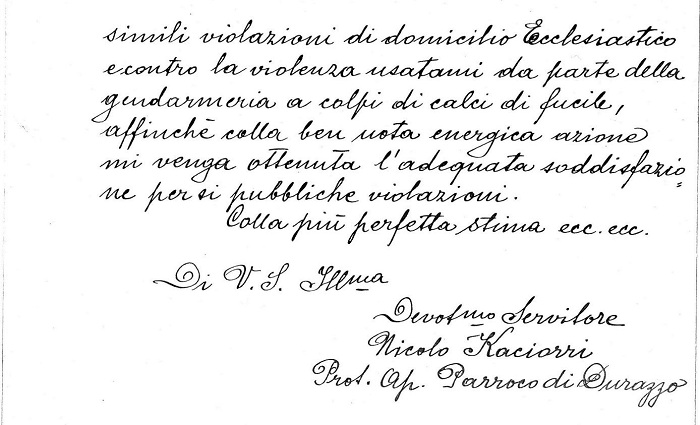 simili violazioni di domicilio Ecclesiastico
e contro la violenza usatami da parte della
gendarmeria a colpi di calci di fucile,
affinchè colla ben nota energica azione
mi venga ottenuta l'adeguata soddisfazio=
ne per si pubbliche violazioni.
Colla più perfetta stima ecc. ecc.
Di V. S. Illma
Devotmo Servitore
Nicolo Kaciorri
Prot. Ap. Parroco di Durazzo